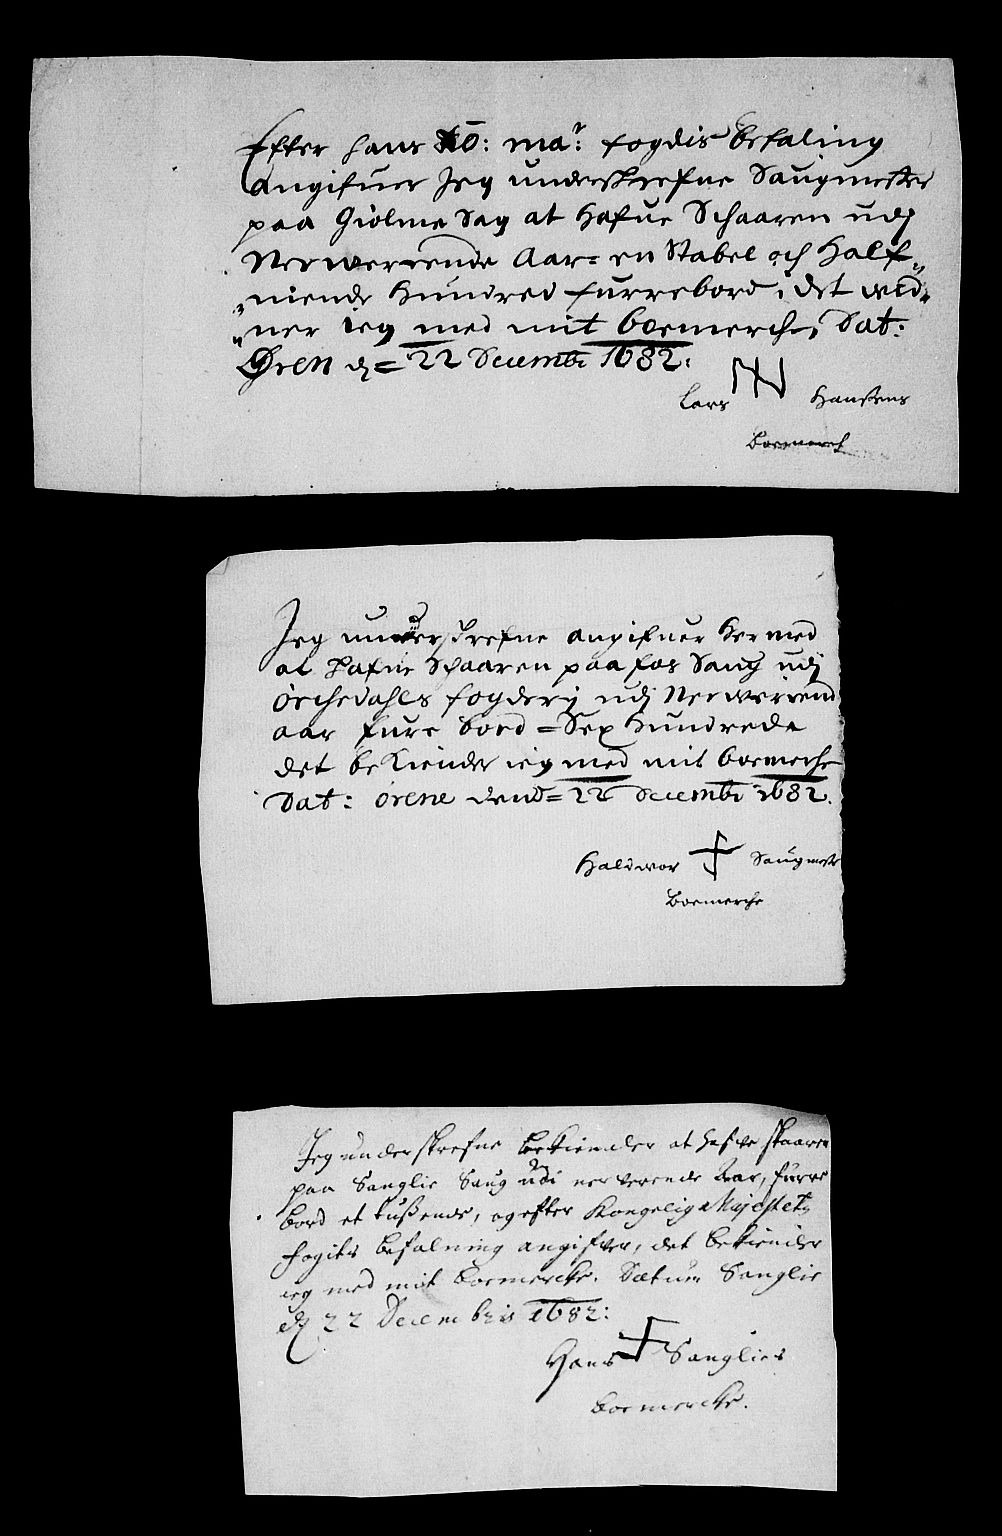 Efter hans Kō: maᵗ: fogdis befaling
angifuer Jeg underskrefne Saugmester
paa Giølme Sag at hafue Schaaren udj
Nerwerende Aar= en Stabel och Half„
„niende Hundred furrebord, det vid„
„ner ieg med mit boemerche, Dat:
Øren d= 22 Decembr 1682:
Lars Hanssens
Boemerch
Jeg underskrefne angifuer Hermed
at Hafue Schaaren paa fos Saug udj
Orchedahls fogderj udj Nerwerrend
aar fure bord = Sex Hundrede
det beKiender ieg med mit boemerche
Dat: Orene dend= 22 Decembr 1682.
Haldwor Saugmestr
Boemerche
Jeg underskrefne bekiender at hafve skaaren
paa Sanglie Saug udi nerverende Aar, furre
bord et tußende, og efter Kongelig Majestetz
fogits befalning angifver, det bekiender
ieg med mit Boemercke. Datum Sanglie
d 22 Decembris 1682:
Hans Sanglies
boemercke.